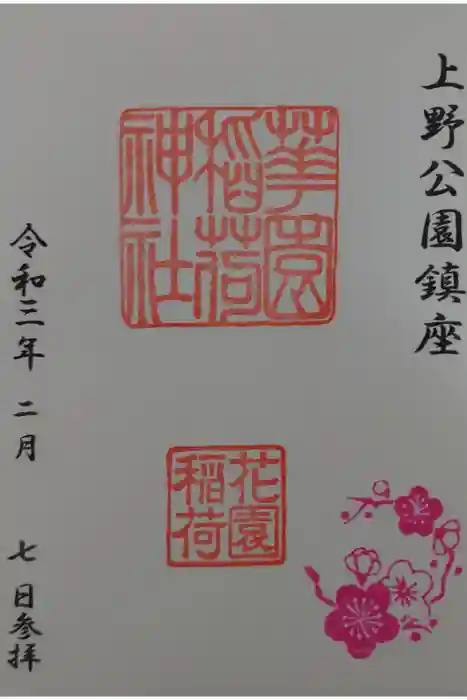 上野公園鎮座
華園稲荷神社
花園稲荷
令和三年 二月 七日参拝